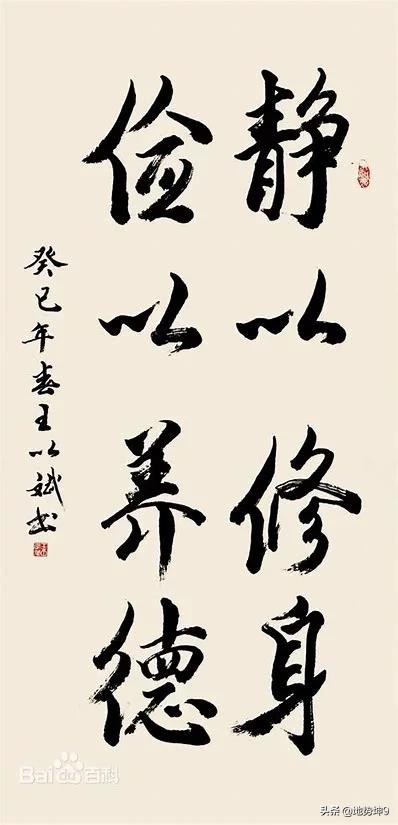 静以修身
俭以养德
癸巳年春王以斌书
Bai百科
头条 @地势坤9